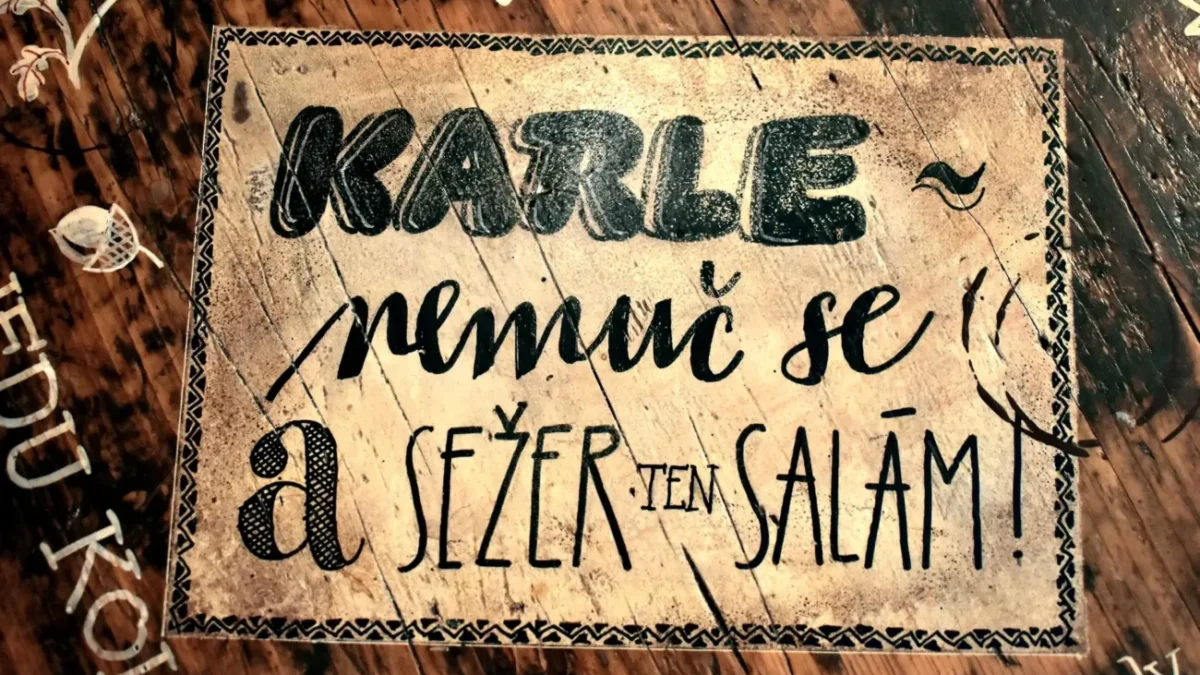 KARLE ~
nemuč se
a SEŽER TEN SALÁM!